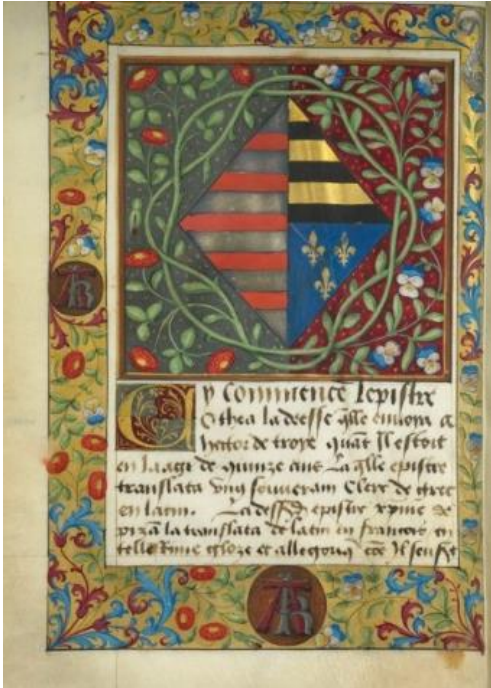 Cy commence lepistre
Othea la deesse qlle envoya a
hector de troye quāt Il estoit
en laage de quinze ans La qlle epistre
translata ung souverain Clerc de grec
en latin. La dess epistre xpine de
pizā la translata de latin en francois en
telle Rime gloze et allegoriq cōe Il sensuyt